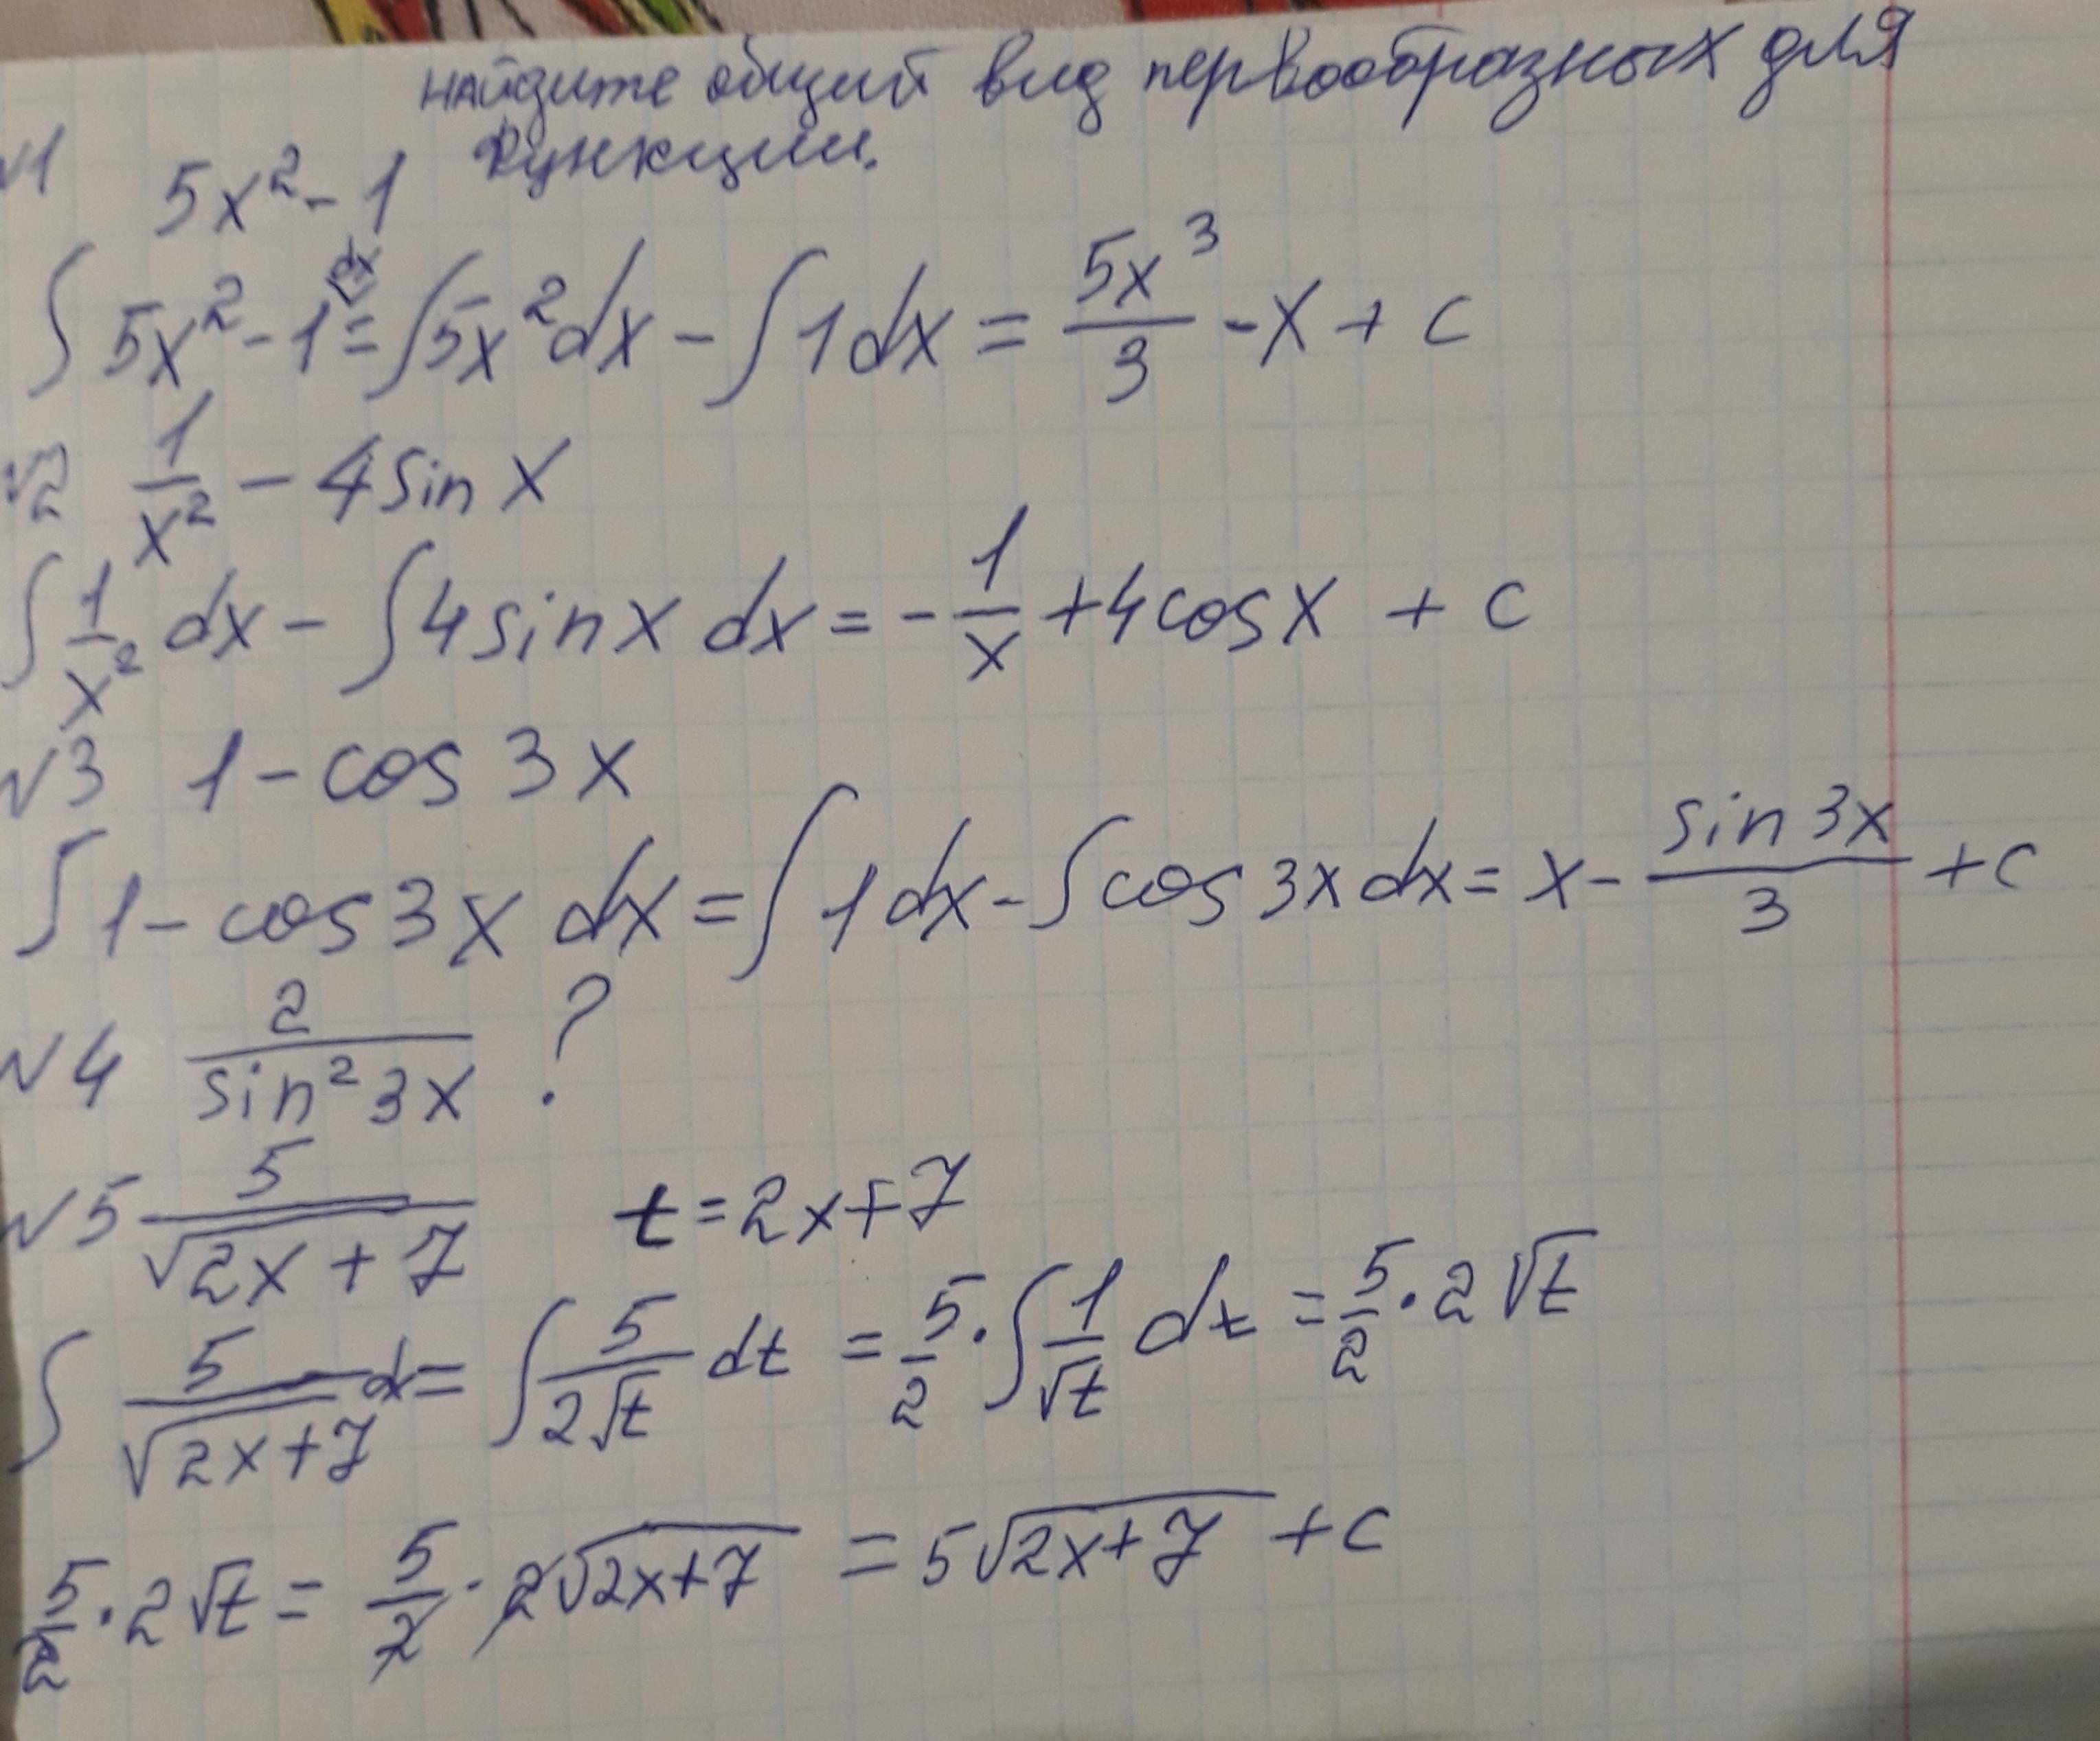 найдите общий вид первообразных для
функции.
№1 5x² - 1
∫ 5x² - 1 dx = ∫ 5x² dx - ∫ 1 dx = 5x³/3 - x + c
№2 1/x² - 4 sin x
∫ 1/x² dx - ∫ 4 sin x dx = - 1/x + 4 cos x + c
№3 1 - cos 3x
∫ 1 - cos 3x dx = ∫ 1 dx - ∫ cos 3x dx = x - sin 3x/3 + c
№4 2/sin² 3x ?
№5 5/√(2x + 7) t = 2x + 7
∫ 5/√(2x + 7) d = ∫ 5/(2√t) dt = 5/2 · ∫ 1/√t dt = 5/2 · 2√t
5/2 · 2√t = 5/2 · 2√(2x + 7) = 5√(2x + 7) + c